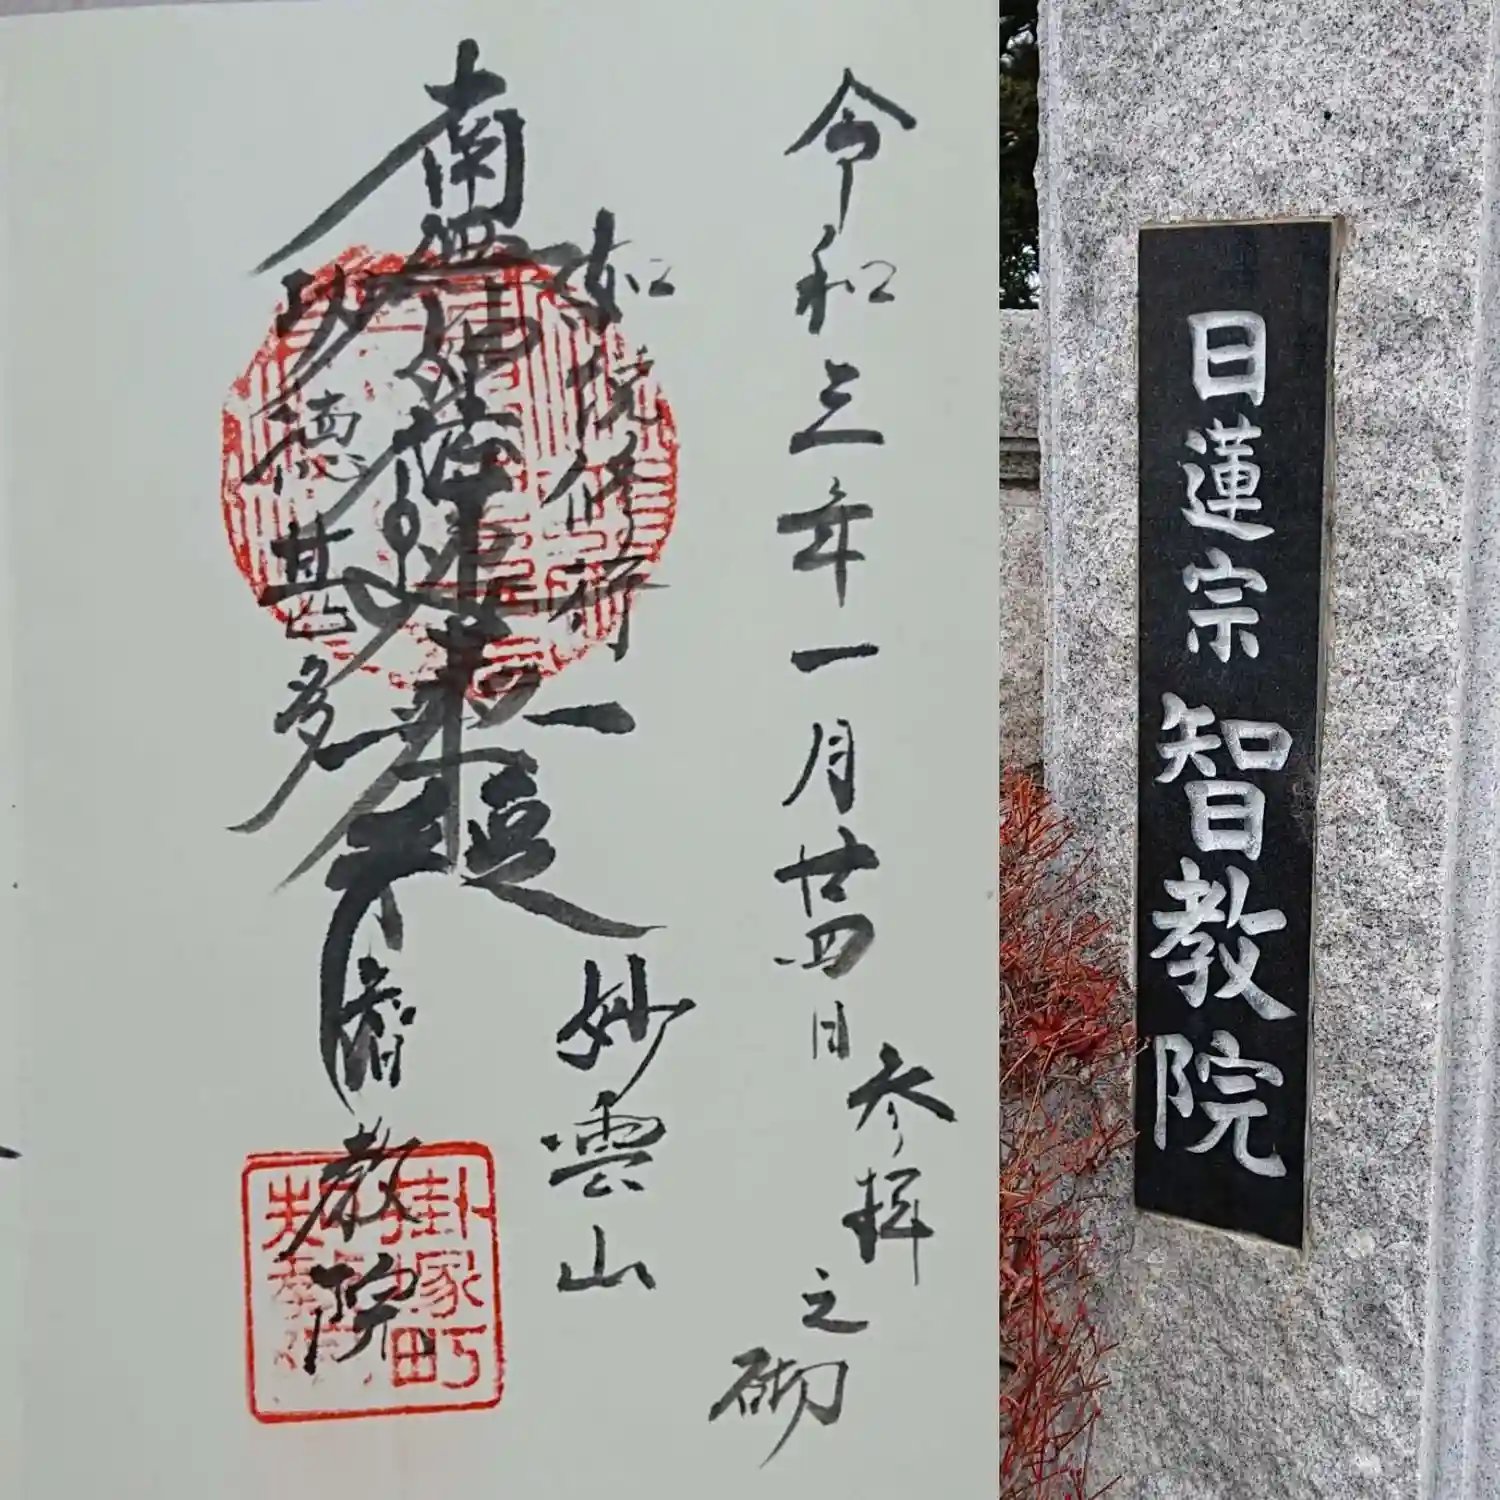 令和三年一月廿四日
参拝之砌
如説修行
南無妙法蓮華経
功徳甚多
一
妙雲山
智教院
掛塚町
智教院
日蓮宗 智教院